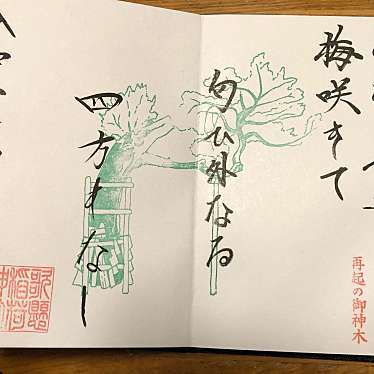 梅咲きて
再起の御神木
匂ひ外なる
四方もなし
歌懸
稲荷